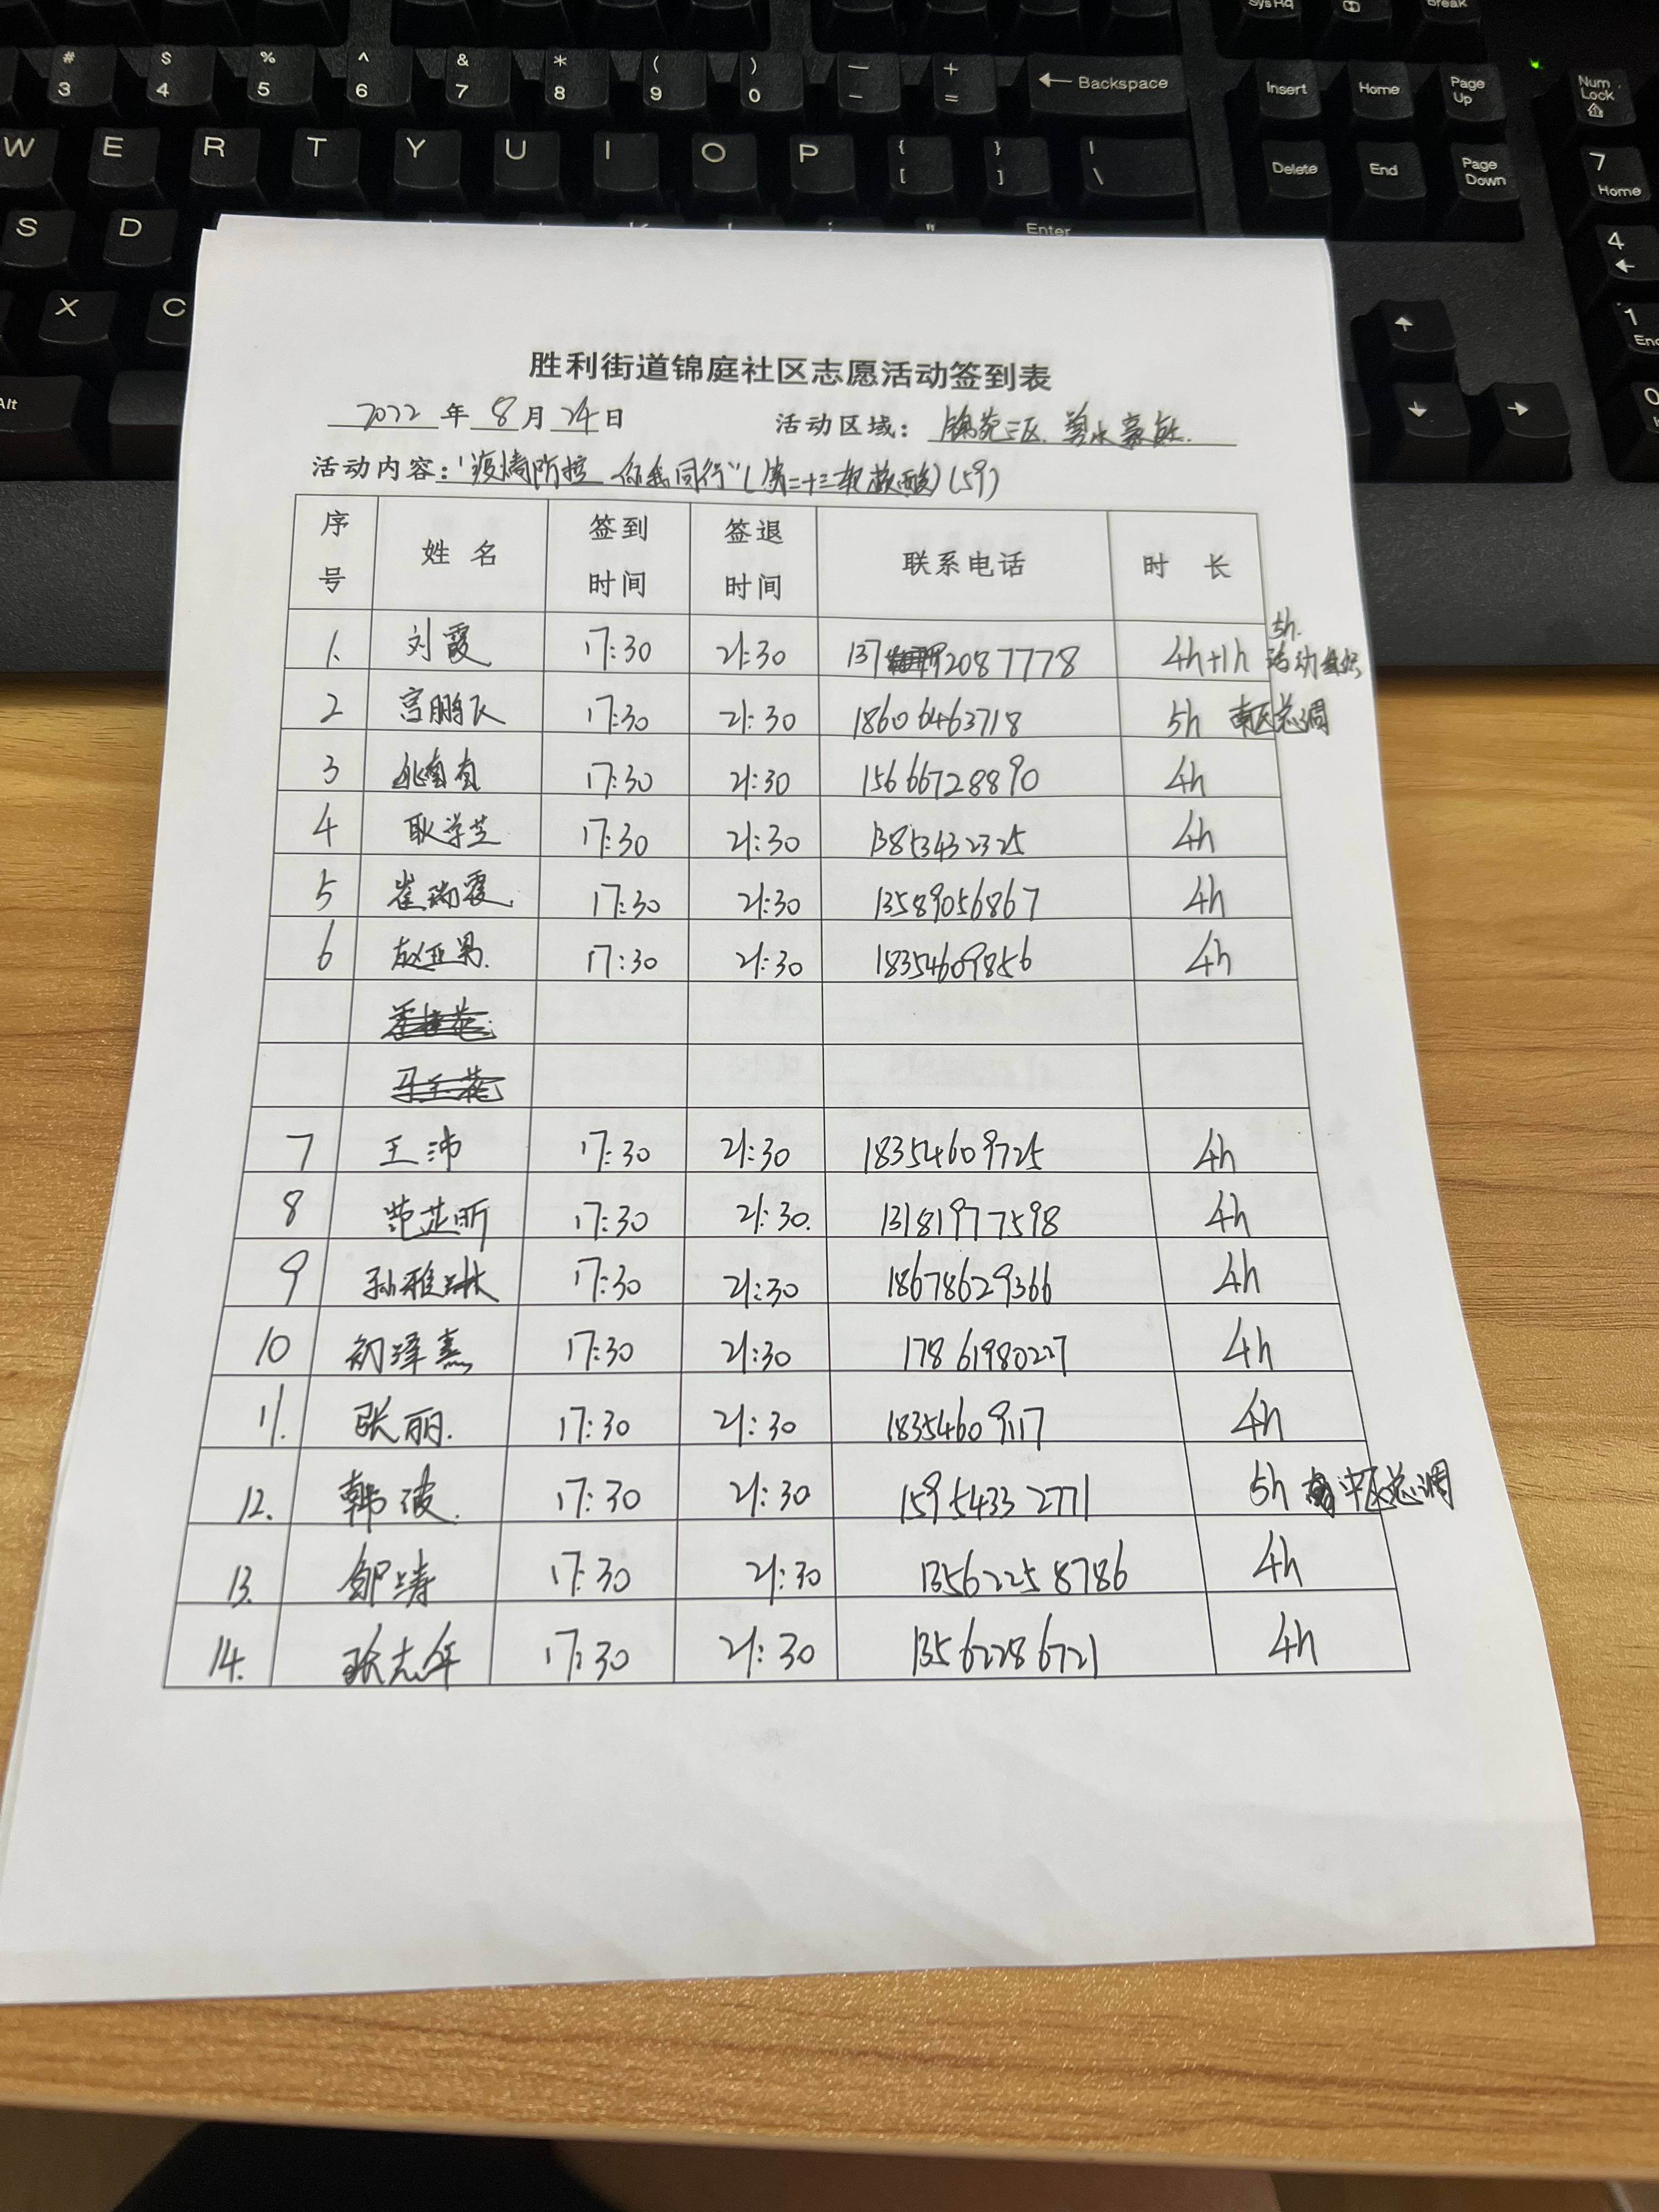 SysRq
Break
# 3 $ 4 % 5 ^ 6 & 7 * 8 ( 9 ) 0 — - + = ← Backspace
Insert Home Page Up Num Lock
W E R T Y U I O P { [ } ] | \
Delete End Page Down 7 Home
S D " Enter
4 ←
X C ↑ 1 End
Alt ← ↓ → 0
胜利街道锦庭社区志愿活动签到表
2022 年 8 月 24 日 活动区域: 锦苑三区.
活动内容:"疫情防控 你我同行"(第二十三轮核酸)(59)
序号 姓名 签到时间 签退时间 联系电话 时长
1. 刘霞 17:30 21:30 137 2087778 4h+1h 5h. 活动组织
2 宫鹏飞 17:30 21:30 18606463718 5h 南区总调
3 17:30 21:30 15666728890 4h
4 耿学芝 17:30 21:30 13853432325 4h
5 崔瑞霞. 17:30 21:30 13589056867 4h
6 赵亚男. 17:30 21:30 18354609856 4h
7 王沛 17:30 21:30 18354609725 4h
8 范芷昕 17:30 21:30. 13181977598 4h
9 孙雅琳 17:30 21:30 18678629366 4h
10 初泽熹 17:30 21:30 17861980227 4h
11. 张丽. 17:30 21:30 18354609117 4h
12. 韩波. 17:30 21:30 15954332771 5h 中区总调
13. 邹涛 17:30 21:30 13562258786 4h
14. 张志华 17:30 21:30 13562286721 4h